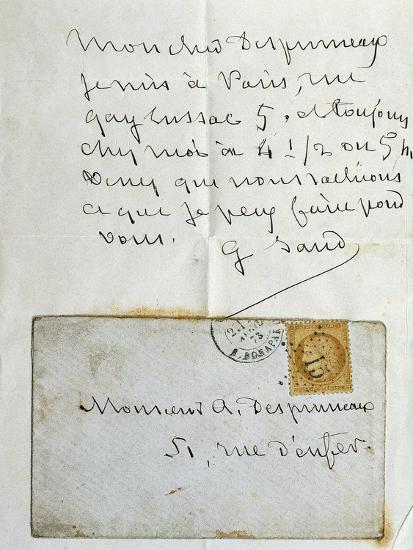 Mon cher Despruneaux
je suis à Paris, rue
gay lussac 5. et toujours
chez moi à 4 1/2 ou 5 h.
Venez que nous
ce que je peux faire pour
vous.
G Sand
2
73
R. BONAPARTE
15
Monsieur A. Despruneaux
51, rue d'enfer.